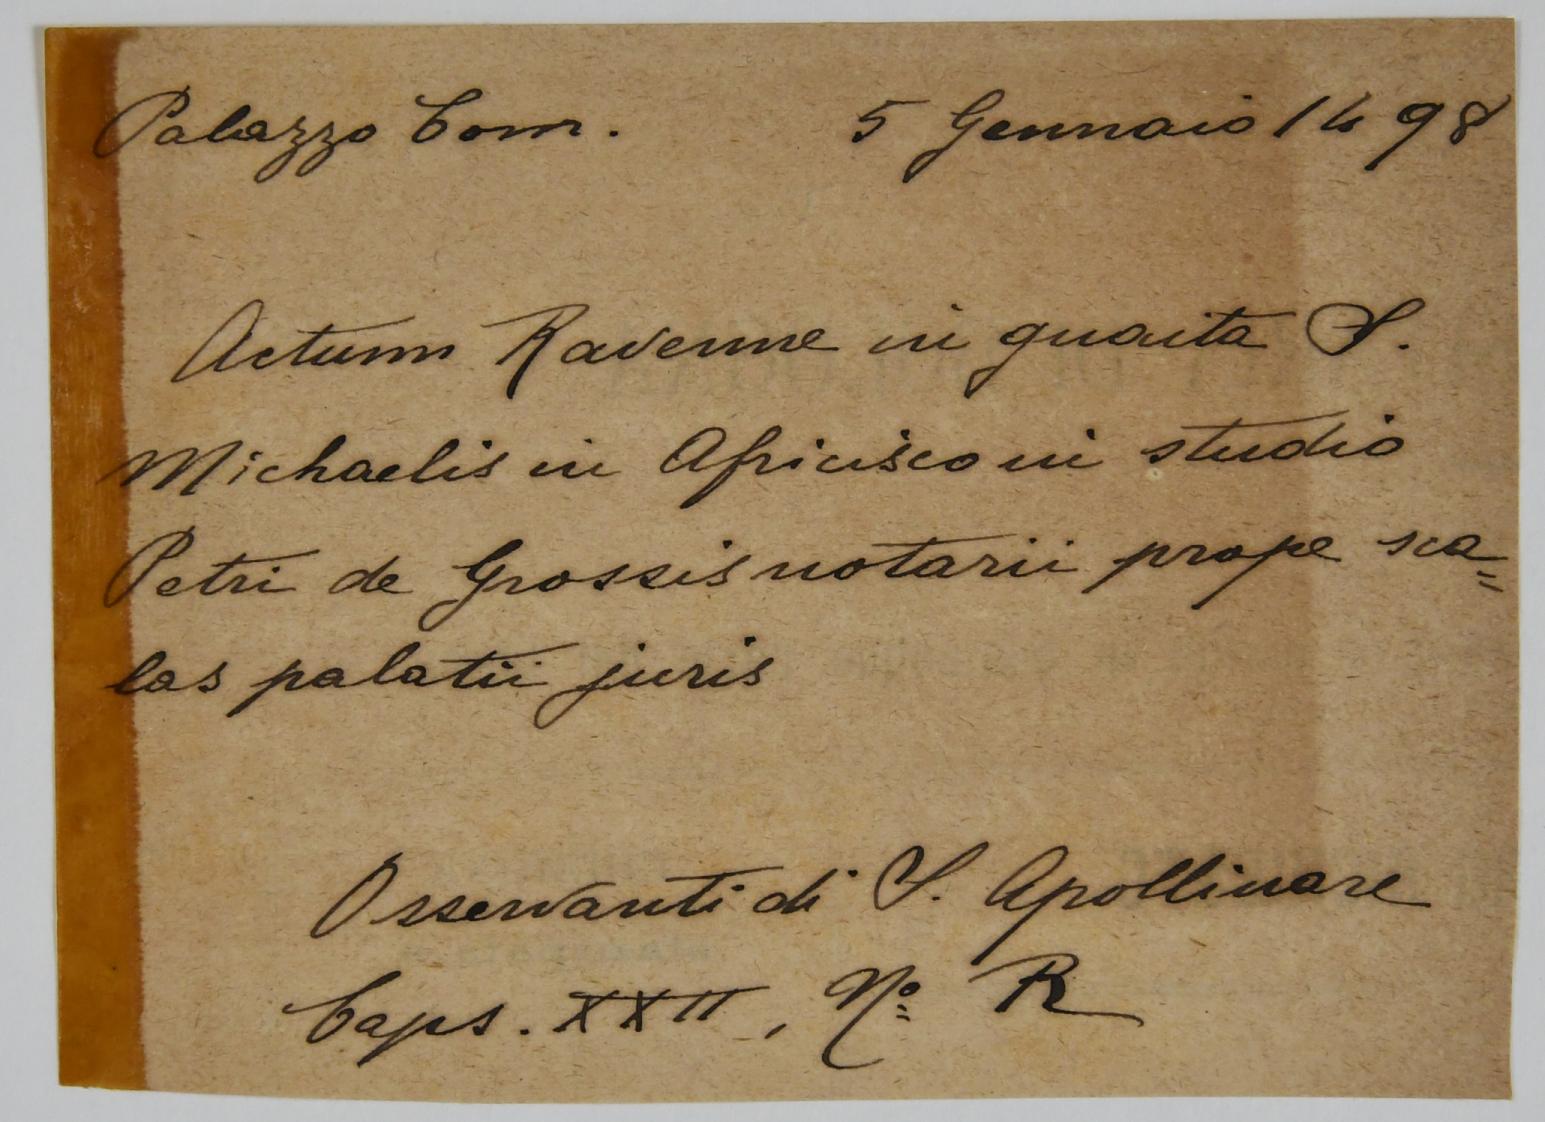 Palazzo Com. 5 Gennaio 1498
Actum Ravenne in guaita S.
Michaelis in Africisco in studio
Petri de Grossis notarii prope sca=
las palatii juris
Osservanti di S. Apollinare
Caps. XXII, Nº R